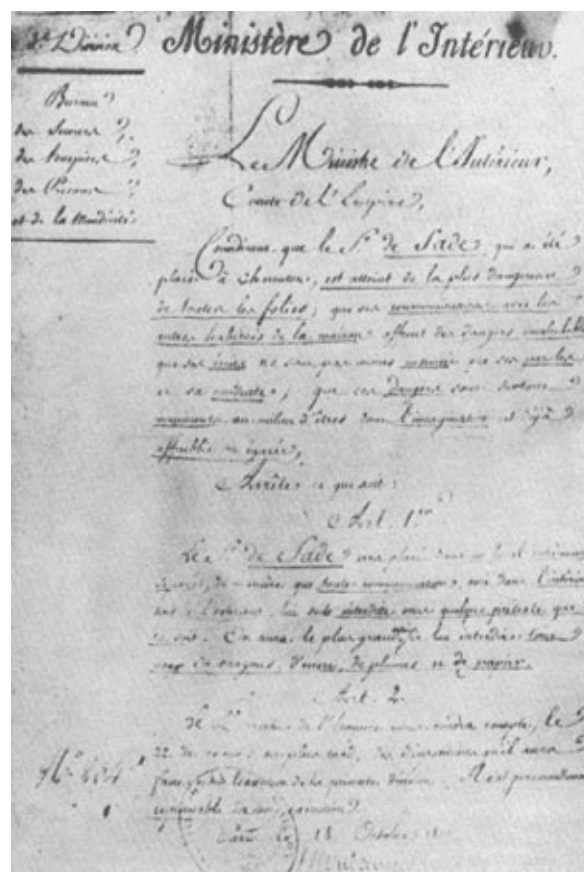 3e Division
Ministère de l'Intérieur.
Bureau
des Secours,
des hospices,
des Prisons,
et de la Mendicité.
Le Ministre de l'Intérieur,
Comte de l'Empire,
Considérant que le Sr. de Sade, qui a été
placé à Charenton, est atteint de la plus dangereuse
de toutes les folies; que ses communications avec les
autres habitués de la maison offrent des dangers incalculables
que ses écrits ne sont pas moins que ses paroles
et sa conduite; que ces Dangers sont surtout
au milieu d'êtres dont l'imagination est déjà
affaiblie ou égarée,
Arrête ce qui suit:
Art. 1er
Le Sr. de Sade sera placé dans un local
séparé, de manière que toute communication, soit dans l'intérieur
soit à l'extérieur, lui soit interdite, sous quelque prétexte que
ce soit. On aura le plus grand soin de lui interdire tout
usage de crayons, d'encre, de plumes et de papier.
Art. 2.
de l'hospice rendra compte, le
22 de ce mois au plus tard, des dispositions qu'il aura
faites pour l'exécution de la présente
No. 404
responsable
Paris le 18 Octobre